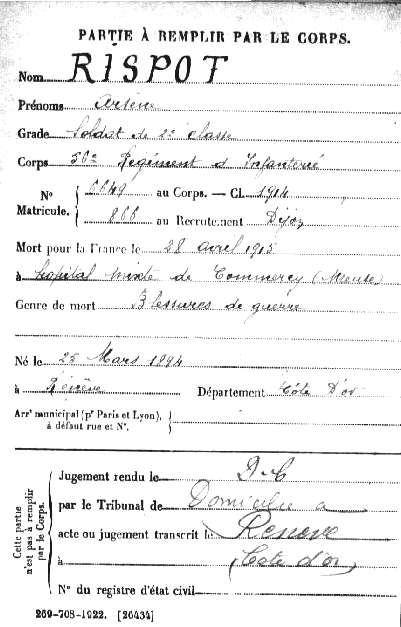 PARTIE À REMPLIR PAR LE CORPS.
Nom RISPOT
Prénoms Arsène
Grade Soldat de 2e classe
Corps 56e Régiment d'Infanterie
N° Matricule. 6649 au Corps. — Cl. 1914
866 au Recrutement Dijon
Mort pour la France le 28 avril 1915
à hopital mixte de Commercy (Meuse)
Genre de mort Blessures de guerre
Né le 25 Mars 1894
à Renève Département Côte D'or
Arrt municipal (pr Paris et Lyon), à défaut rue et N°.
Cette partie n'est pas à remplir par le Corps.
Jugement rendu le D.C
par le Tribunal de Domicilié à
acte ou jugement transcrit le Renève
à (Cote d'or)
N° du registre d'état civil
269-708-1922. [26434]